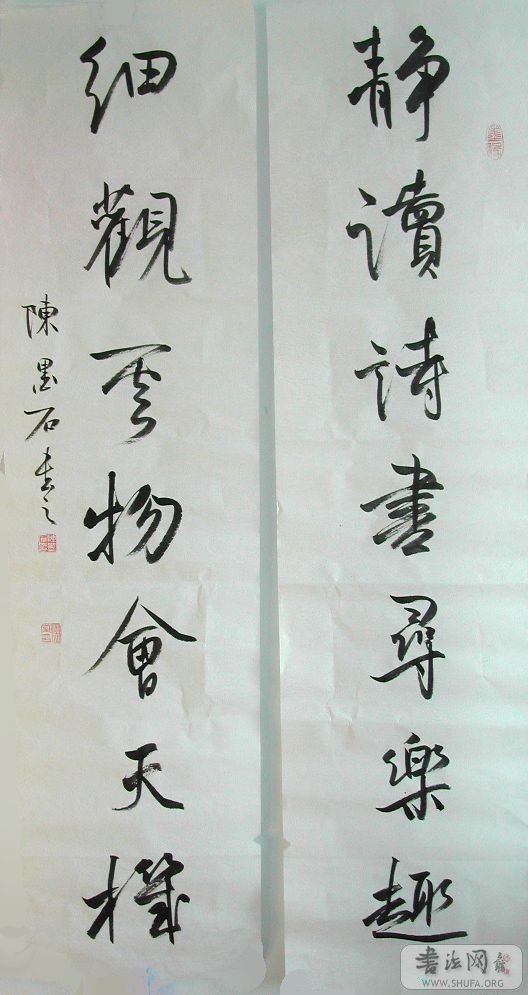 静讀詩書尋樂趣
細觀雲物會天機
陳墨石書之
書法网
WWW.SHUFA.ORG